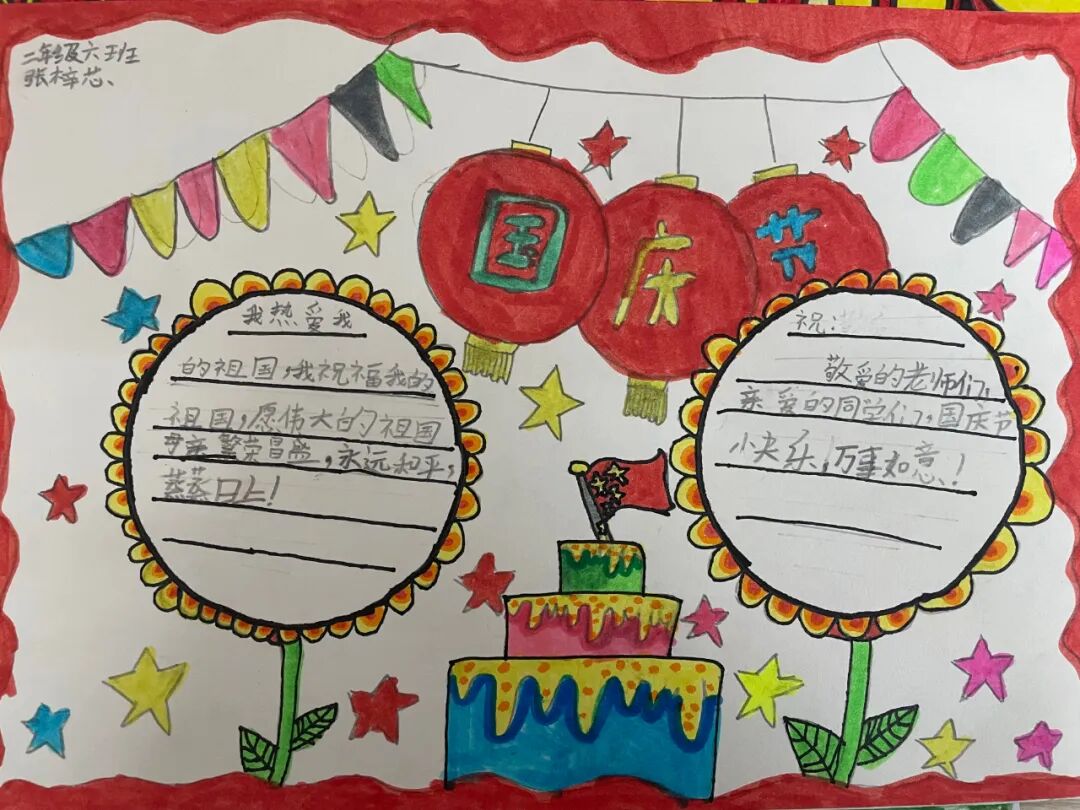 二年级六班
张梓芯、
国庆节
我热爱我
的祖国,我祝福我的
祖国,愿伟大的祖国
母亲繁荣昌盛,永远和平,
蒸蒸日上!
祝:
敬爱的老师们,
亲爱的同学们,国庆节
快乐,万事如意!